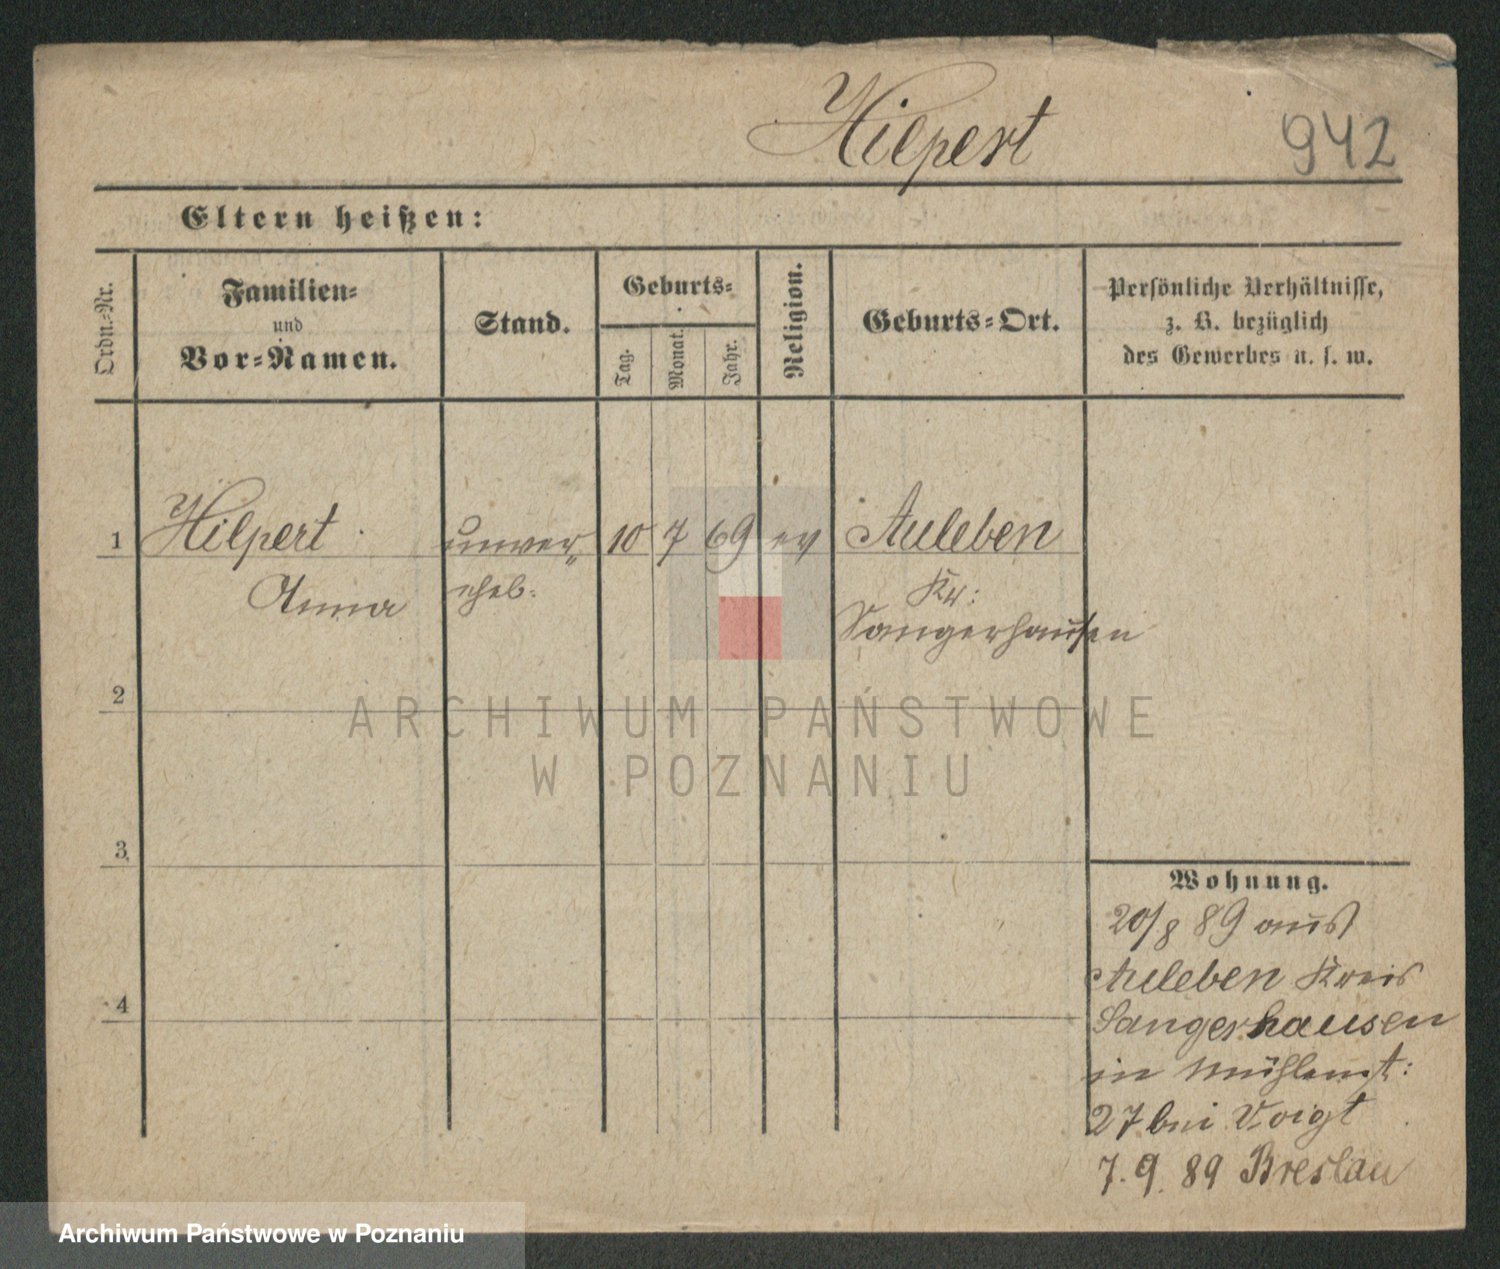 Hilpert
942
Eltern heißen:
Ordn.-Nr.
Familien-
und
Vor-Namen.
Stand.
Geburts-
Tag.
Monat.
Jahr.
Religion.
Geburts-Ort.
Persönliche Verhältnisse,
z. B. bezüglich
des Gewerbes u. s. w.
1 Hilpert unver- 10 7 69 ev Auleben
Anna ehel. Kr:
Sangerhausen
2
3
4
Wohnung.
20/8 89 aus
Auleben Kreis
Sangerhausen
in Mühlenst:
27 bei Voigt
7.9.89 Breslau
ARCHIWUM PAŃSTWOWE
W POZNANIU
Archiwum Państwowe w Poznaniu